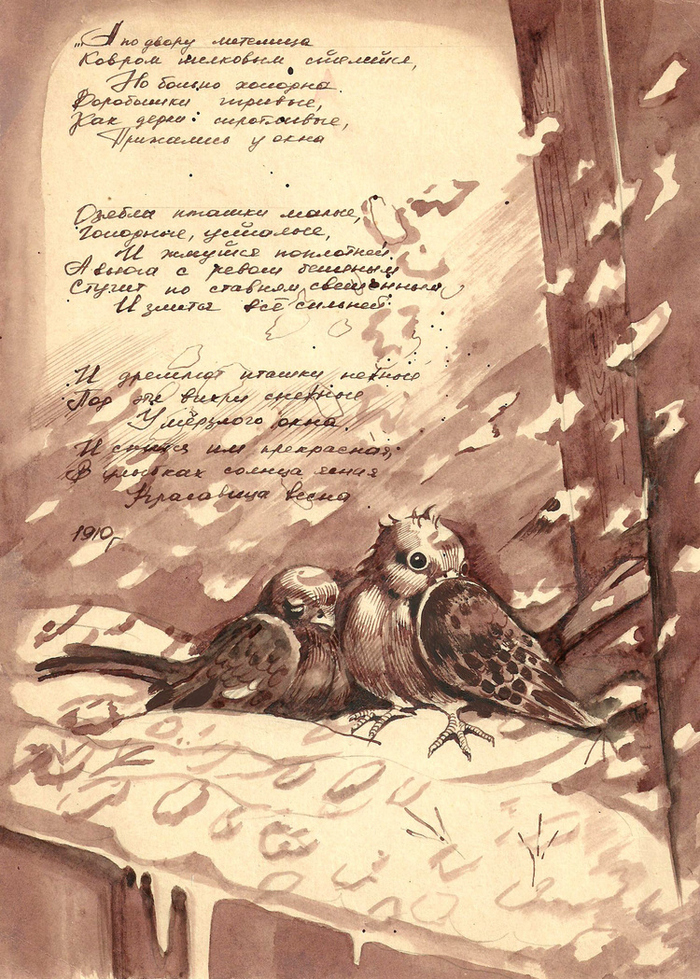 „А по двору метелица
Ковром шелковым стелится,
Но больно холодна.
Воробышки игривые,
Как детки сиротливые,
Прижались у окна
Озябли пташки малые,
Голодные, усталые,
И жмутся поплотней.
А вьюга с ревом бешеным
Стучит по ставням свешенным
И злится всё сильней.
И дремлют пташки нежные
Под эти вихри снежные
У мёрзлого окна.
И снится им прекрасная,
В улыбках солнца ясная
Красавица весна
1910 г